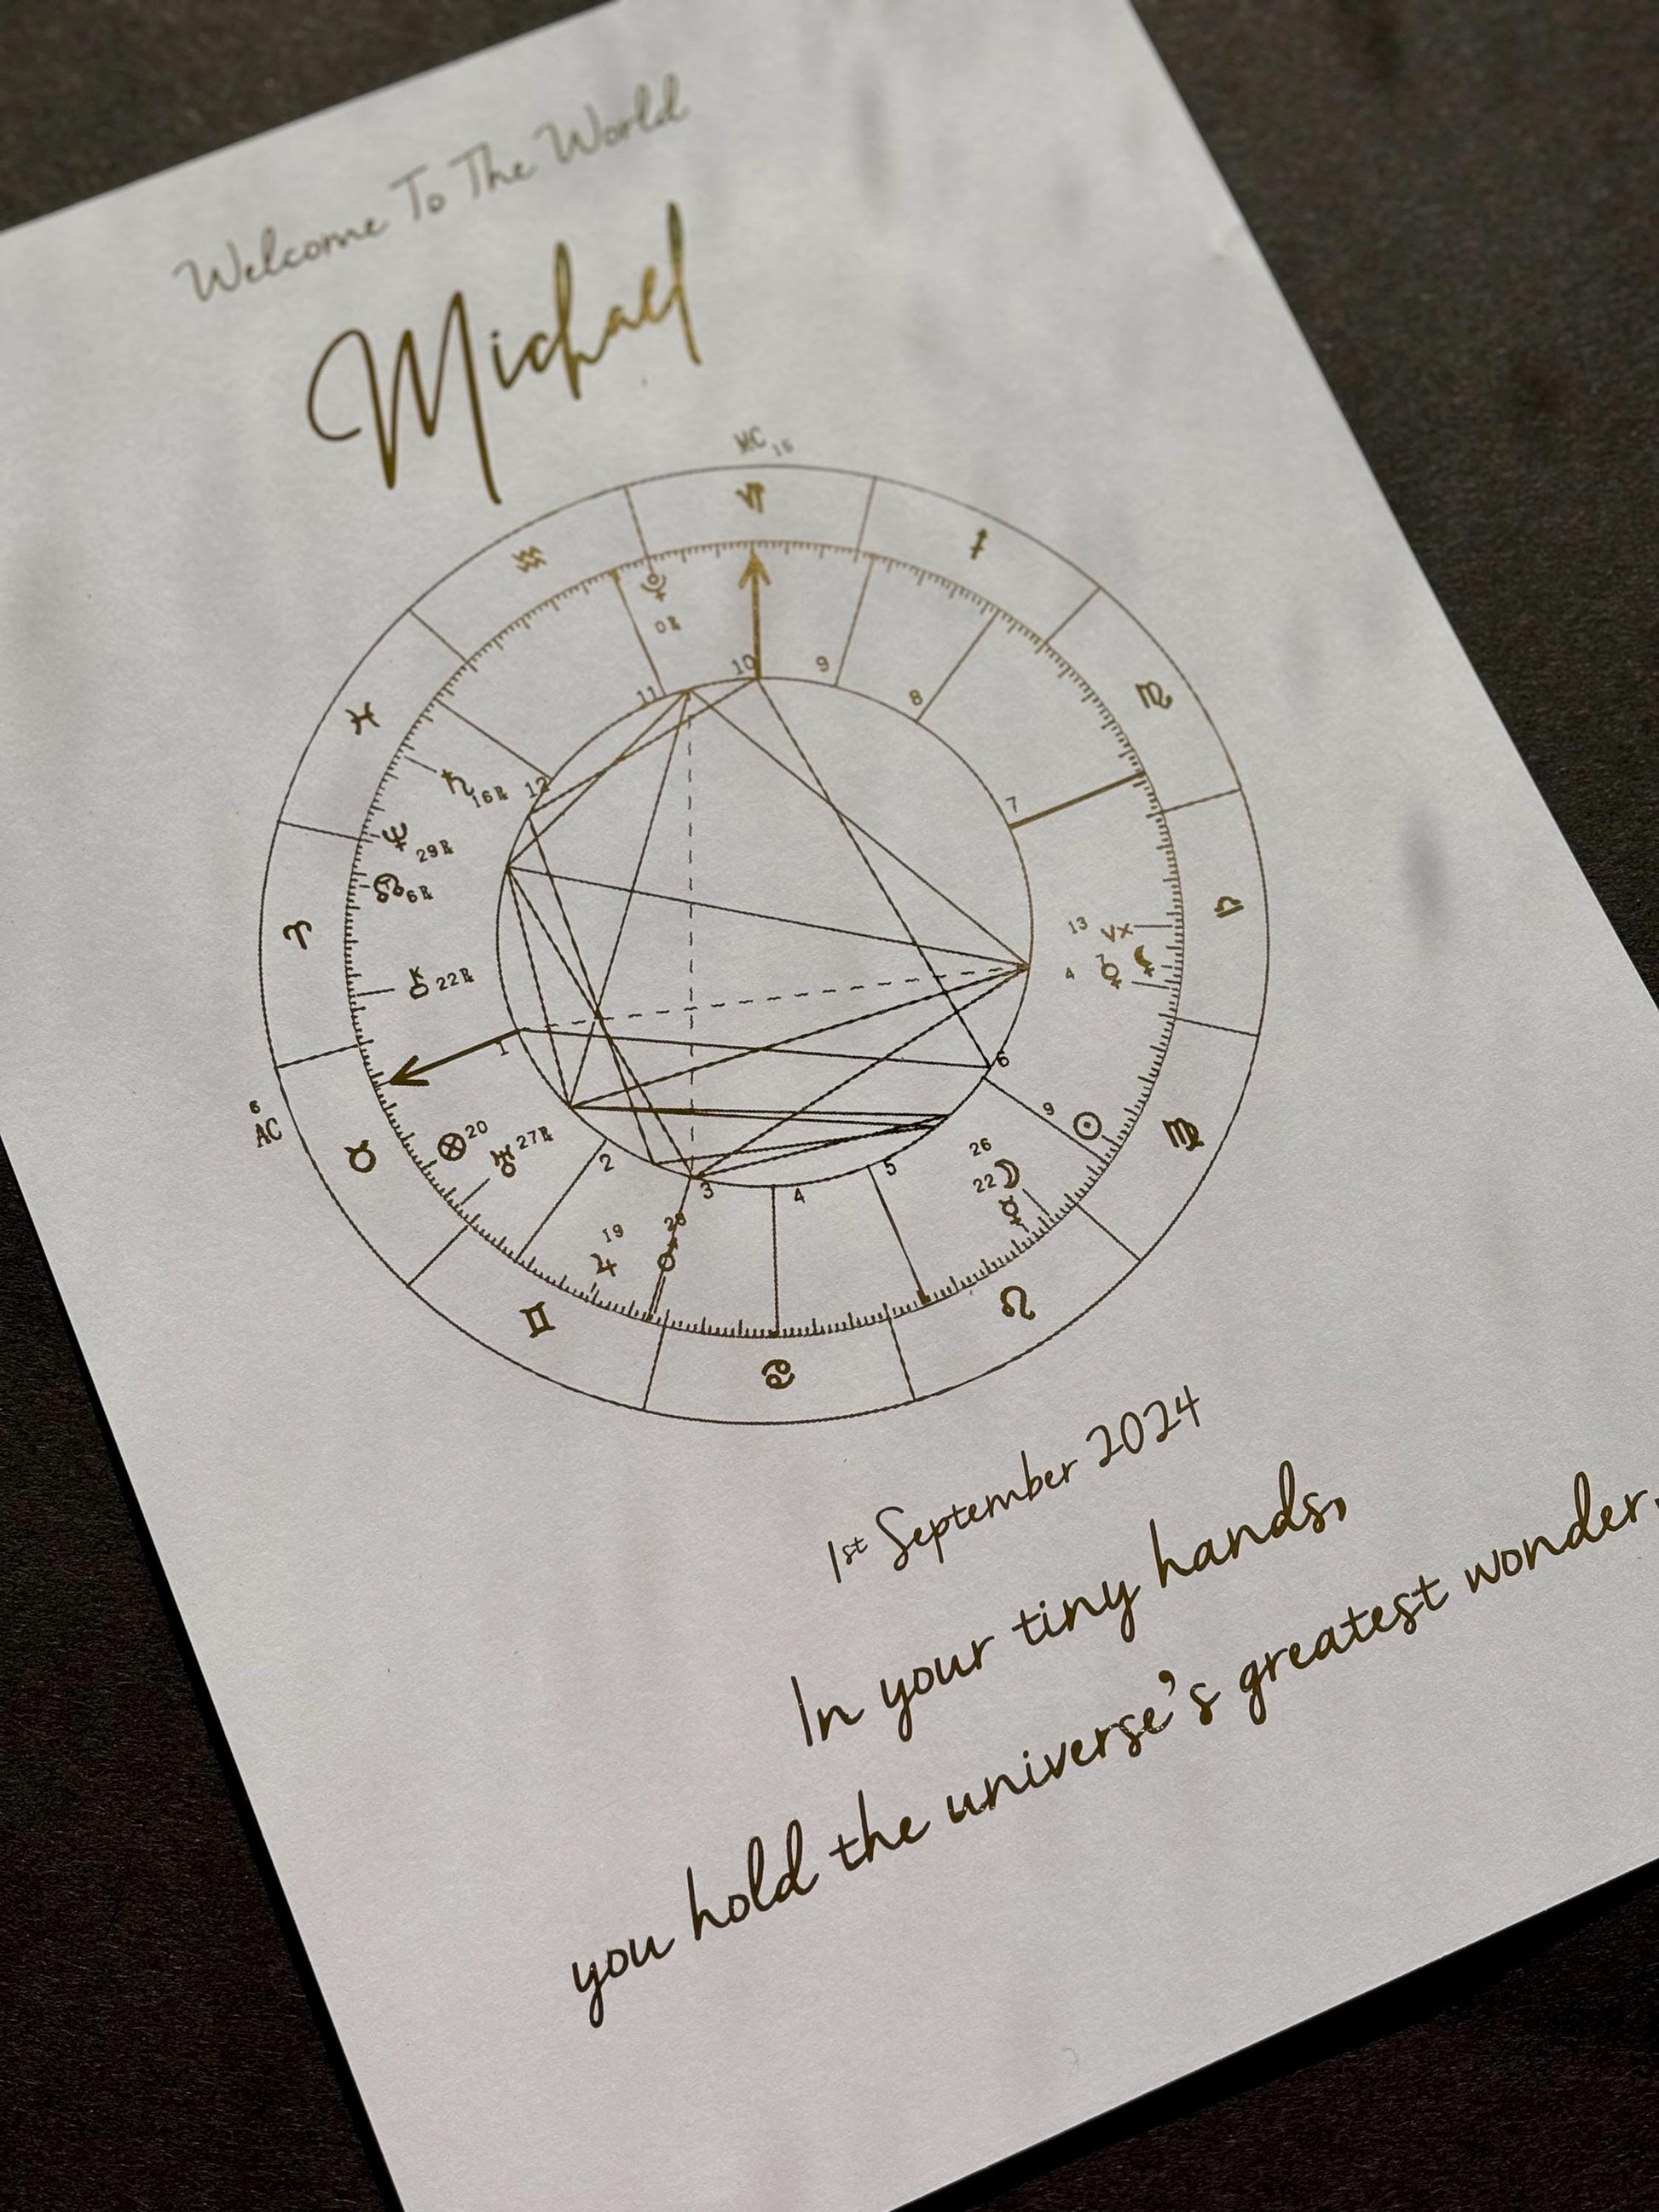 Welcome To The World
Michael
MC 15
♑
♐
♒
♏
♓
♇
0℞
10
9
11
8
12
7
♄ 16℞
♆ 29℞
☊ 6℞
♎
13 Vx
♈
4 ♀ 7 ⚸
⚷ 22℞
1
6
6
AC
♉
⊗ 20
♅ 27℞
9 ☉
♍
2
3
4
5
26 ☽
22 ☿
19 ♃
♂
♊
♋
♌
1st September 2024
In your tiny hands,
you hold the universe's greatest wonder.